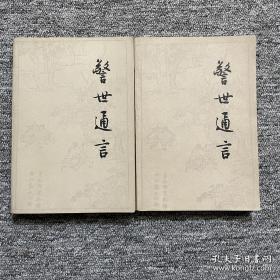 警世通言
警世通言
孔夫子旧书网